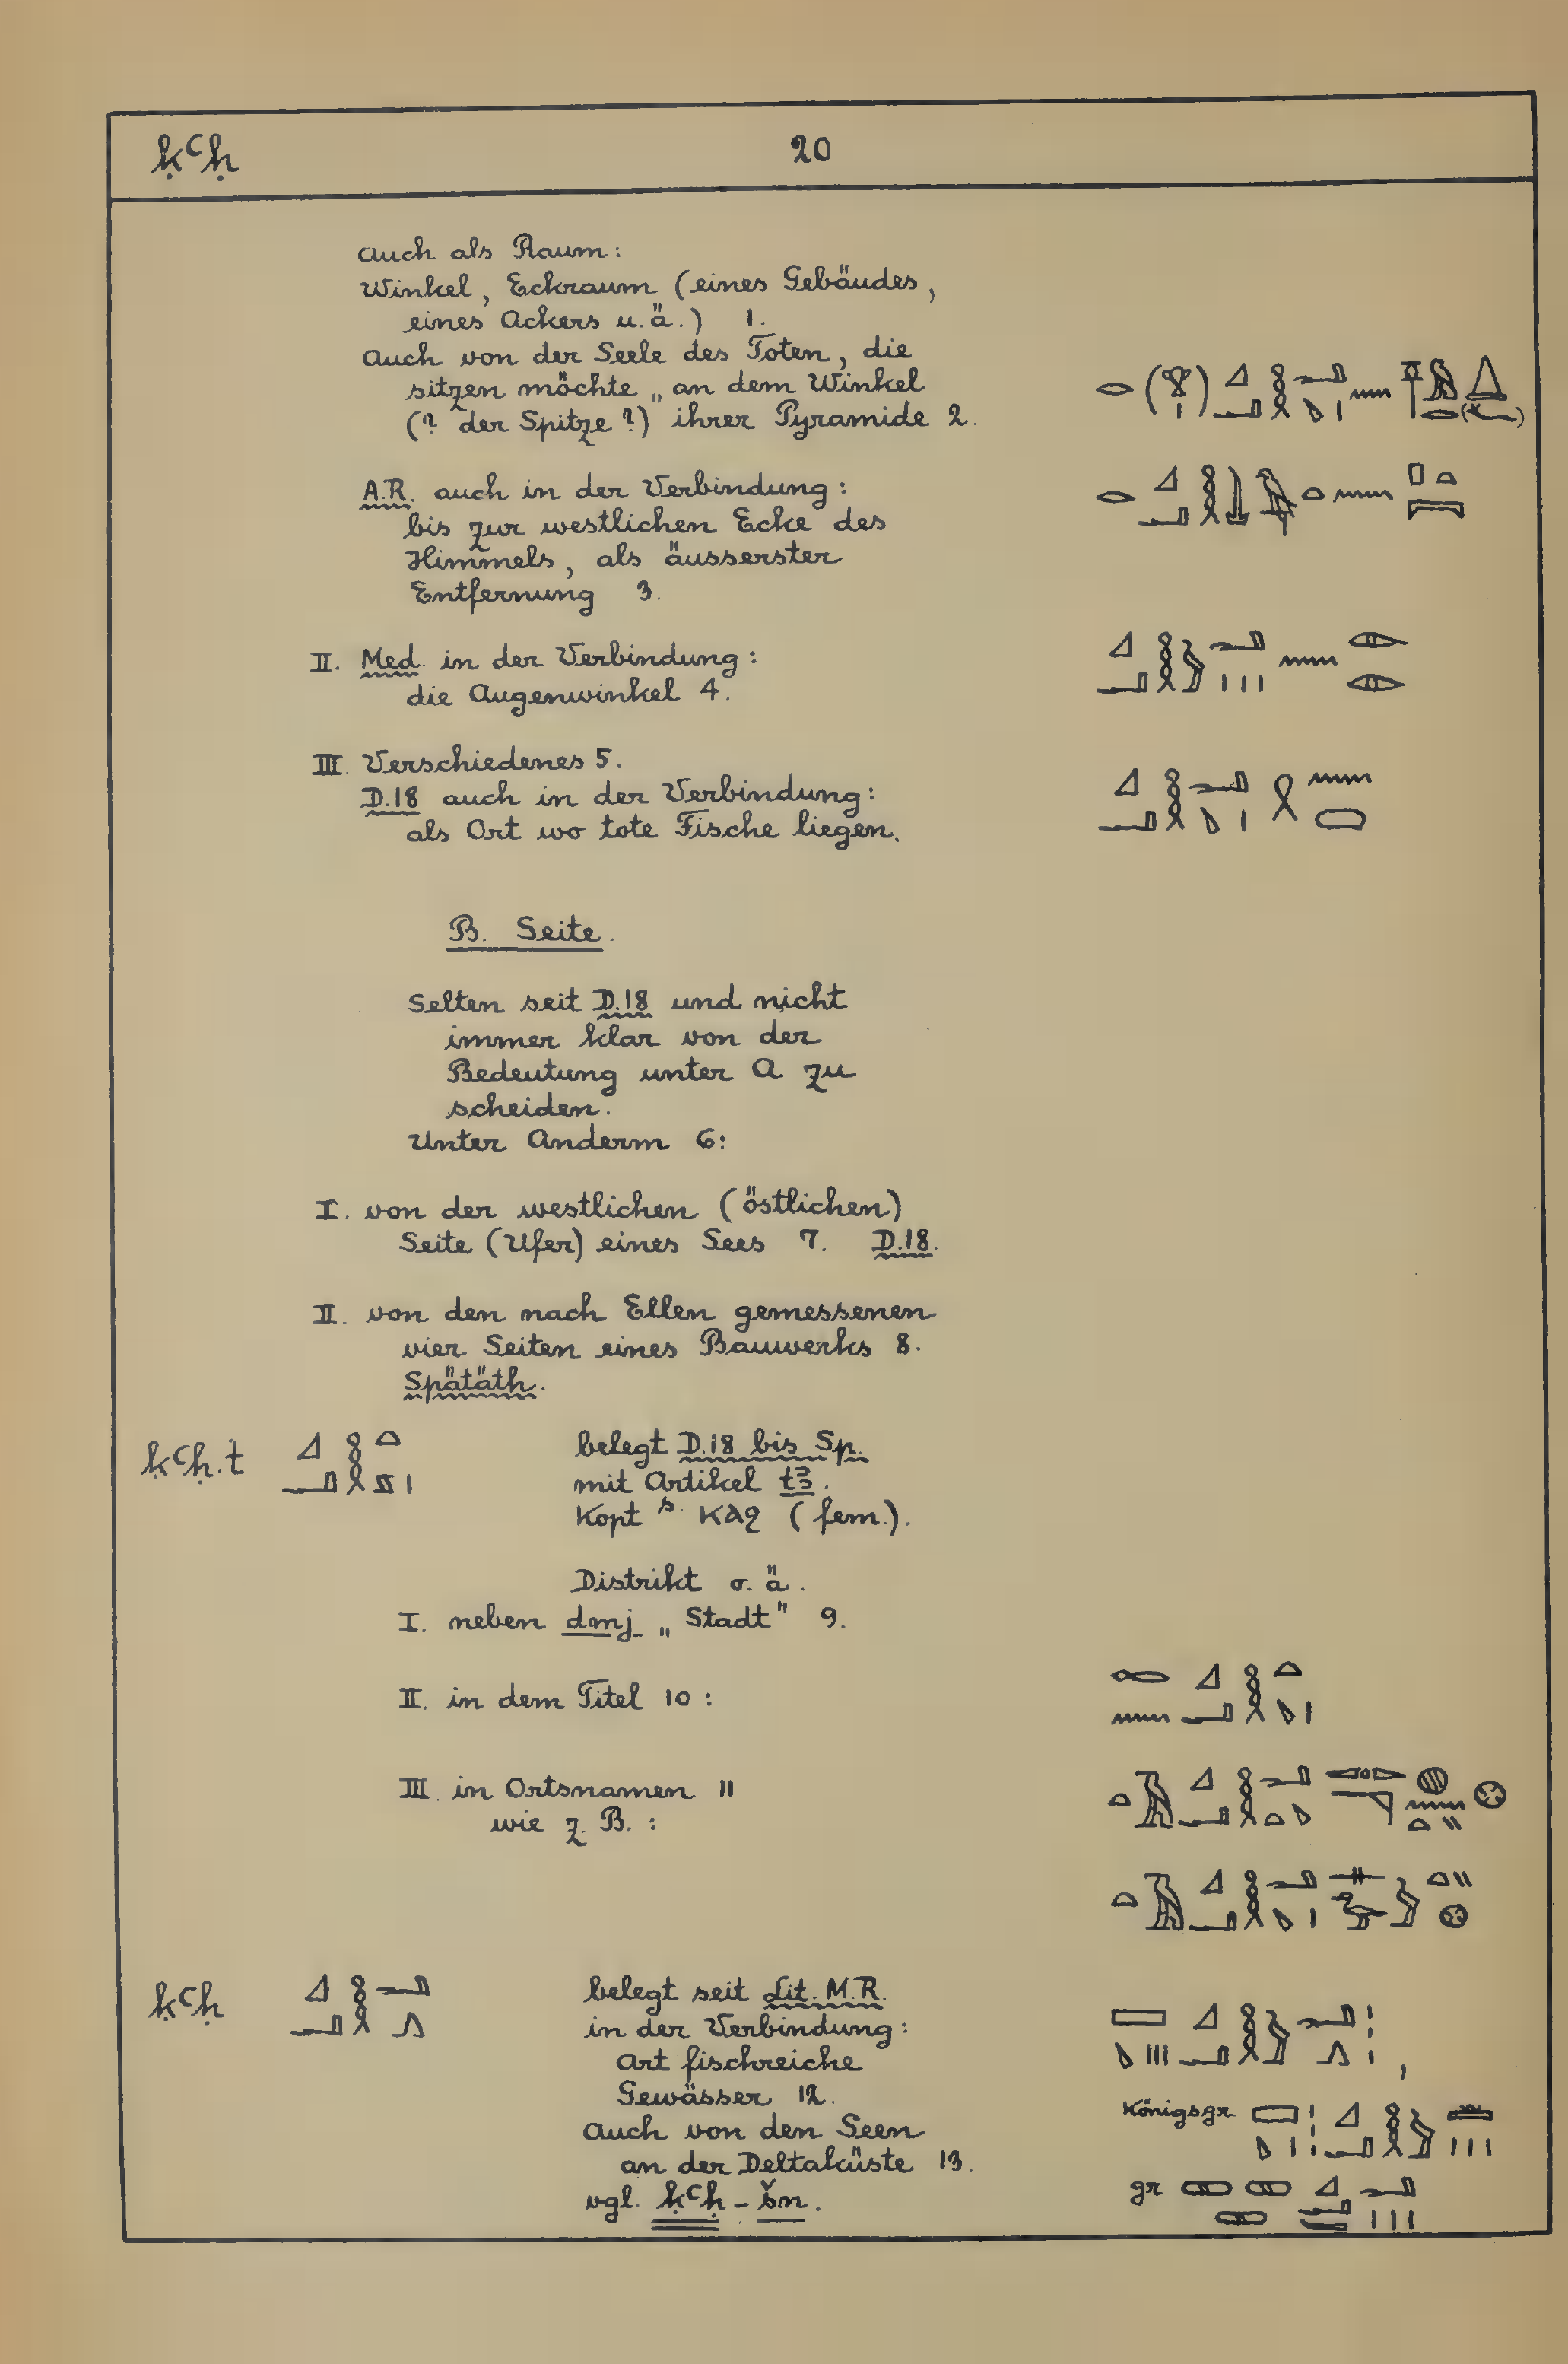 ḳꜥḥ 20
auch als Raum:
Winkel, Eckraum (eines Gebäudes,
eines Ackers u. ä.) 1.
Auch von der Seele des Toten, die
sitzen möchte „an dem Winkel
(? der Spitze ?) ihrer Pyramide 2.
A.R. auch in der Verbindung:
bis zur westlichen Ecke des
Himmels, als äusserster
Entfernung 3.
II. Med. in der Verbindung:
die Augenwinkel 4.
III. Verschiedenes 5.
D.18 auch in der Verbindung:
als Ort wo tote Fische liegen.
B. Seite.
Selten seit D.18 und nicht
immer klar von der
Bedeutung unter A zu
scheiden.
Unter Anderm 6:
I. von der westlichen (östlichen)
Seite (Ufer) eines Sees 7. D.18.
II. von den nach Ellen gemessenen
vier Seiten eines Bauwerks 8.
Spätäth.
ḳꜥḥ.t belegt D.18 bis Sp.
mit Artikel tꜣ.
Kopt s. ⲕⲁϩ (fem.).
Distrikt o. ä.
I. neben dmj „Stadt" 9.
II. in dem Titel 10:
III. in Ortsnamen 11
wie z. B.:
ḳꜥḥ belegt seit Lit. M.R.
in der Verbindung:
Art fischreiche
Gewässer 12.
Auch von den Seen Königsgr
an der Deltaküste 13.
vgl. ḳꜥḥ-šn. gr